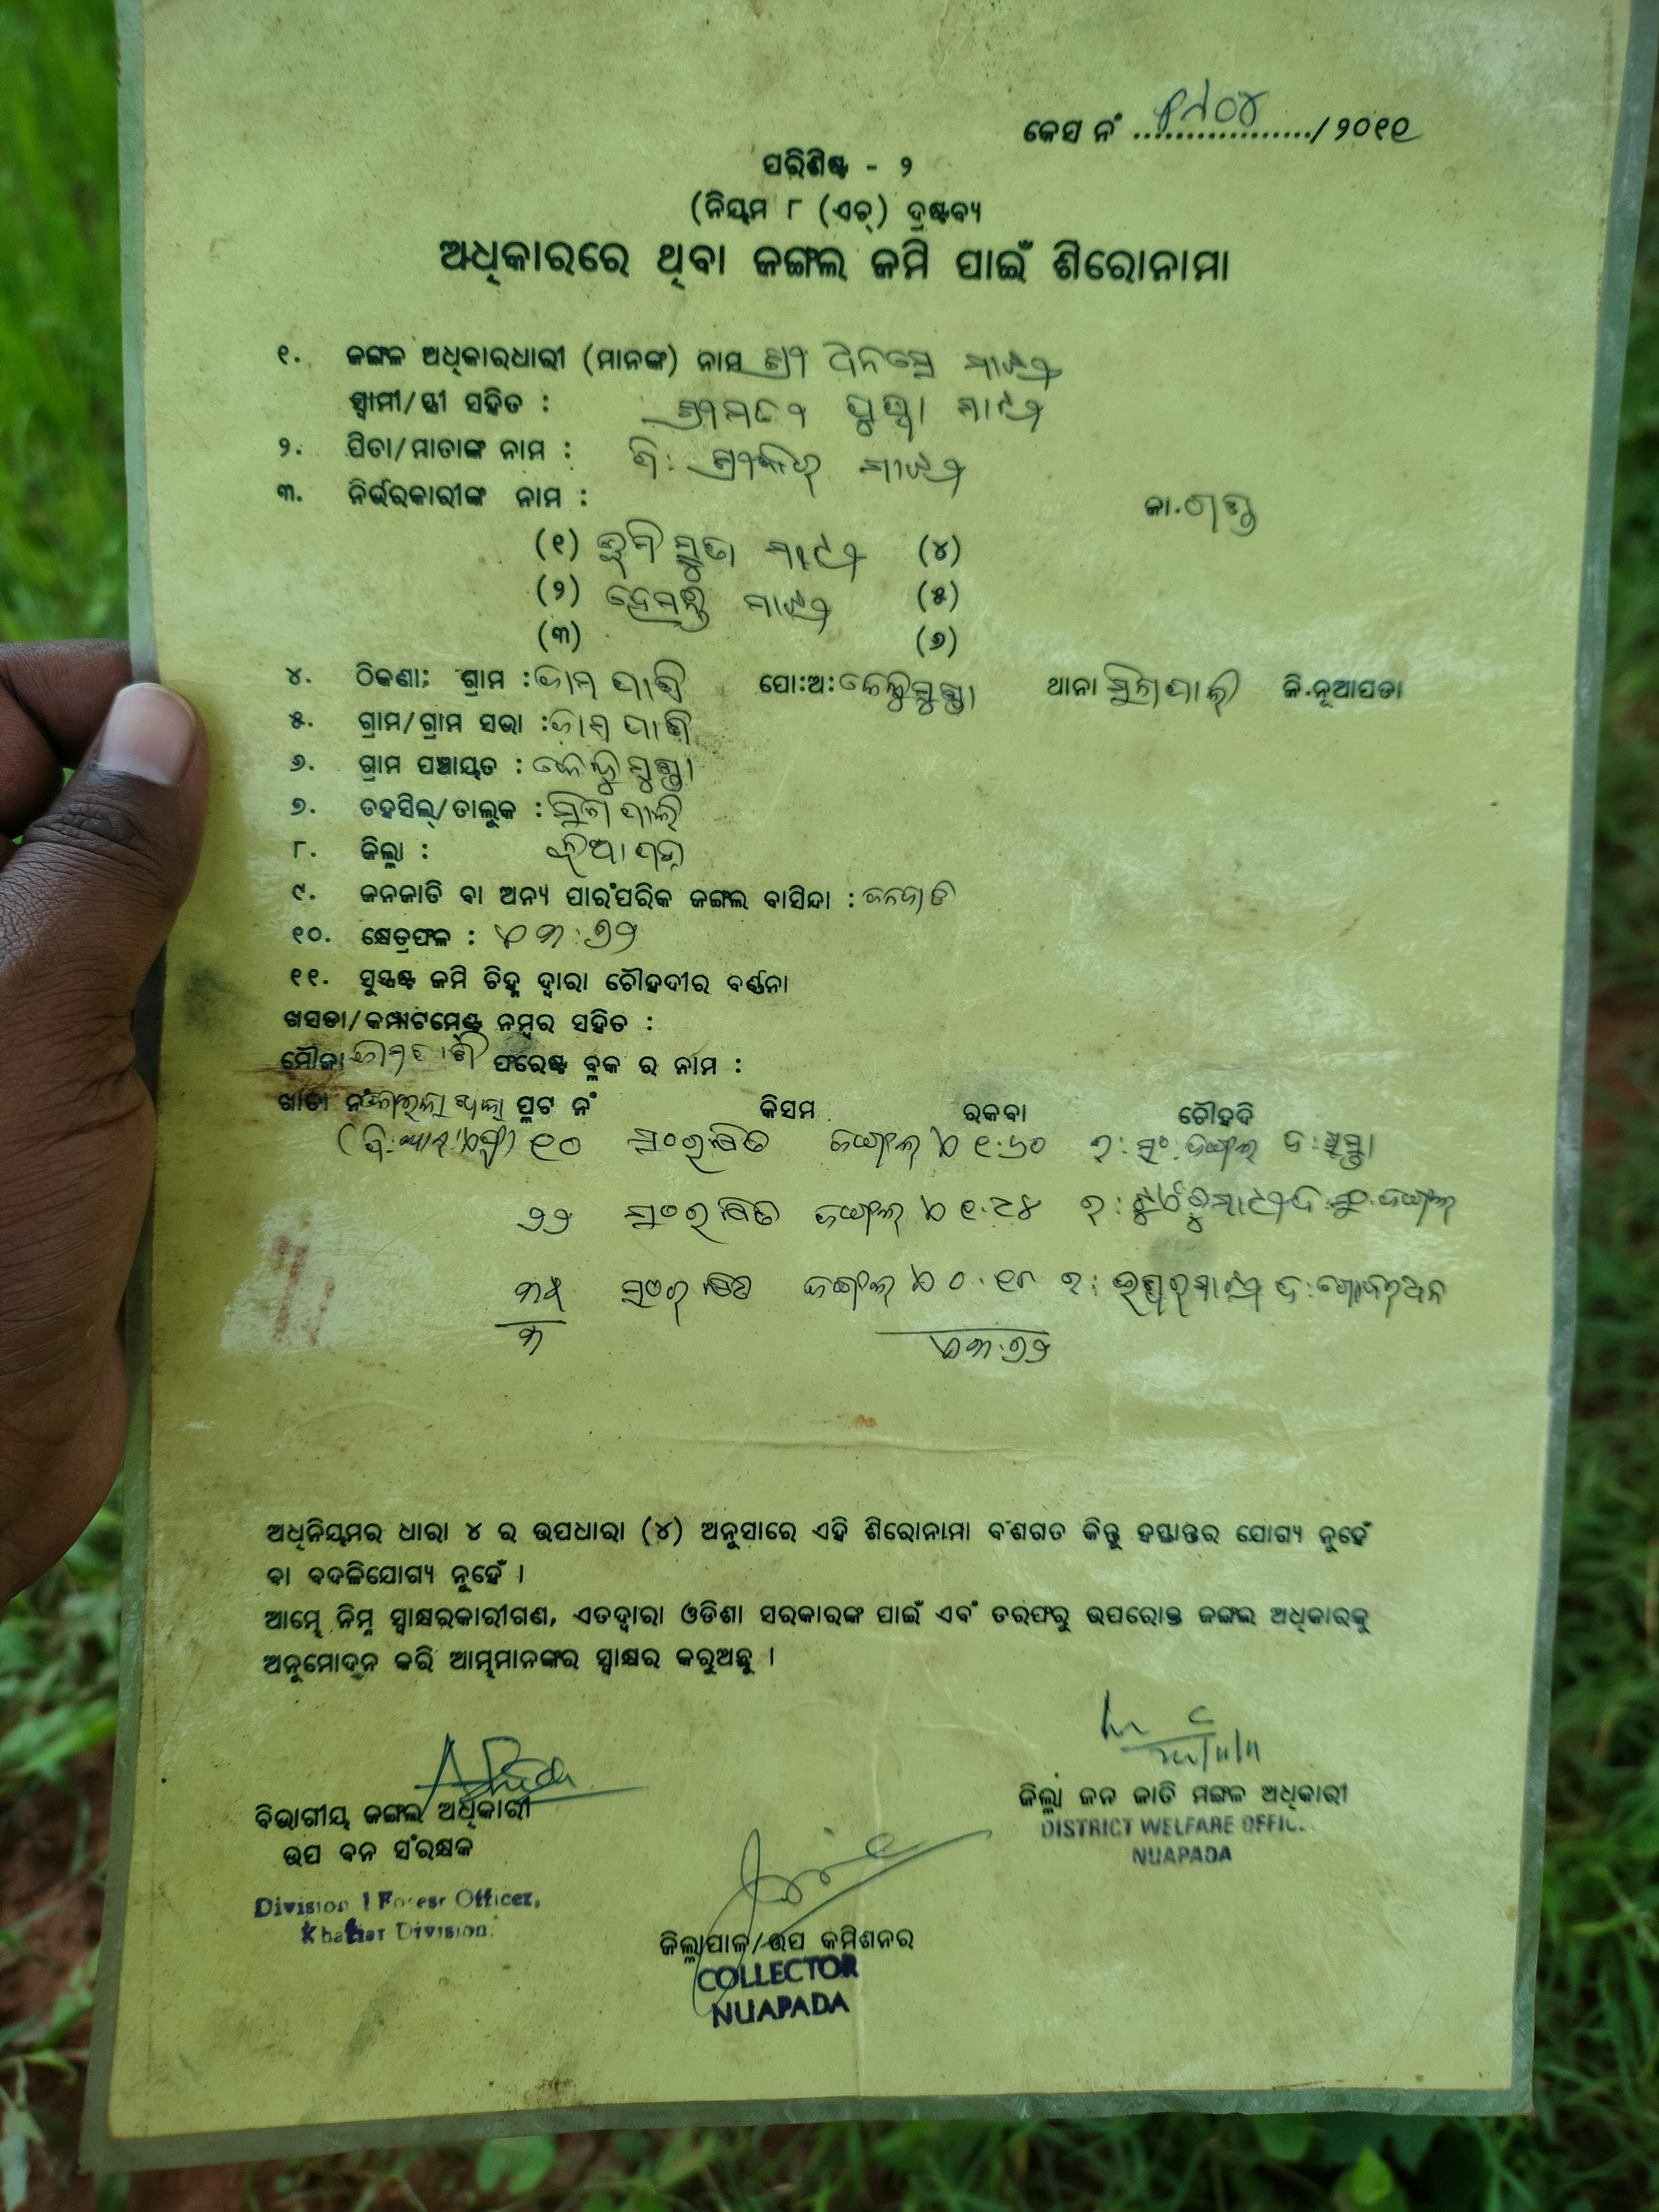 କେସ ନଂ ................./ ୨୦୧୧
ପରିଶିଷ୍ଟ - ୨
(ନିୟମ ୮ (ଏଚ୍) ଦ୍ରଷ୍ଟବ୍ୟ
ଅଧିକାରରେ ଥିବା ଜଙ୍ଗଲ ଜମି ପାଇଁ ଶିରୋନାମା
୧. ଜଙ୍ଗଳ ଅଧିକାରଧାରୀ (ମାନଙ୍କ) ନାମ ଶ୍ରୀ ମାଝୀ
ସ୍ୱାମୀ/ସ୍ତ୍ରୀ ସହିତ : ଶ୍ରୀମତୀ ମାଝୀ
୨. ପିତା/ମାତାଙ୍କ ନାମ : ପି: ମାଝୀ
୩. ନିର୍ଭରକାରୀଙ୍କ ନାମ : ଜା.ଗଣ୍ଡ
(୧) ମାଝୀ (୪)
(୨) ହେମନ୍ତ ମାଝୀ (୫)
(୩) (୬)
୪. ଠିକଣା: ଗ୍ରାମ : ଜାମପାନି ପୋ:ଅ: ଥାନା ଜି.ନୂଆପଡା
୫. ଗ୍ରାମ/ଗ୍ରାମ ସଭା : ଜାମପାନି
୬. ଗ୍ରାମ ପଞ୍ଚାୟତ :
୭. ତହସିଲ୍/ତାଲୁକ :
୮. ଜିଲ୍ଲା : ନୂଆପଡା
୯. ଜନଜାତି ବା ଅନ୍ୟ ପାରଂପରିକ ଜଙ୍ଗଲ ବାସିନ୍ଦା : ଜନଜାତି
୧୦. କ୍ଷେତ୍ରଫଳ : ଏ ୩.୭୨
୧୧. ସୁସ୍ପଷ୍ଟ ଜମି ଚିହ୍ନ ଦ୍ୱାରା ଚୌହଦୀର ବର୍ଣ୍ଣନା
ଖସଡା/କମ୍ପାଟମେଣ୍ଟ ନମ୍ବର ସହିତ :
ମୌଜା ଜାମପାନି ଫରେଷ୍ଟ ବ୍ଲକ ର ନାମ :
ଖାତା ନଂ ପ୍ଲଟ ନଂ କିସମ ରକବା ଚୌହଦି
୧୦ ସଂରକ୍ଷିତ ଜଙ୍ଗଲ ଏ ୧.୬୦ ଉ: ସଂ.ଜଙ୍ଗଲ ଦ:
୨୨ ସଂରକ୍ଷିତ ଜଙ୍ଗଲ ଏ ୧.୯୪ ଉ: ଦ: ସଂ.ଜଙ୍ଗଲ
୩୫ ସଂରକ୍ଷିତ ଜଙ୍ଗଲ ଏ ୦.୧୮ ଉ: ଦ: ଗୋବର୍ଦ୍ଧନ
୩ ଏ ୩.୭୨
ଅଧିନିୟମର ଧାରା ୪ ର ଉପଧାରା (୪) ଅନୁସାରେ ଏହି ଶିରୋନାମା ବଂଶଗତ କିନ୍ତୁ ହସ୍ତାନ୍ତର ଯୋଗ୍ୟ ନୁହେଁ
ବା ବଦଳିଯୋଗ୍ୟ ନୁହେଁ ।
ଆମ୍ଭେ ନିମ୍ନ ସ୍ୱାକ୍ଷରକାରୀଗଣ, ଏତଦ୍ୱାରା ଓଡିଶା ସରକାରଙ୍କ ପାଇଁ ଏବଂ ତରଫରୁ ଉପରୋକ୍ତ ଜଙ୍ଗଲ ଅଧିକାରକୁ
ଅନୁମୋଦନ କରି ଆମ୍ଭମାନଙ୍କର ସ୍ୱାକ୍ଷର କରୁଅଛୁ ।
ବିଭାଗୀୟ ଜଙ୍ଗଲ ଅଧିକାରୀ
ଉପ ବନ ସଂରକ୍ଷକ
Division l Forest Officer,
Khariar Division.
ଜିଲ୍ଲା ଜନ ଜାତି ମଙ୍ଗଳ ଅଧିକାରୀ
DISTRICT WELFARE OFFIC
NUAPADA
ଜିଲ୍ଲାପାଳ/ଉପ କମିଶନର
COLLECTOR
NUAPADA